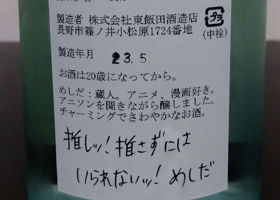 製造者 株式会社東飯田酒造店
長野市篠ノ井小松原1724番地
プラ
(中栓)
製造年月 23.5.
お酒は20歳になってから。
めしだ:蔵人。アニメ、漫画好き。
アニソンを聞きながら醸しました。
チャーミングでさわやかなお酒。
推しッ!推さずには
いられないッ!めしだ